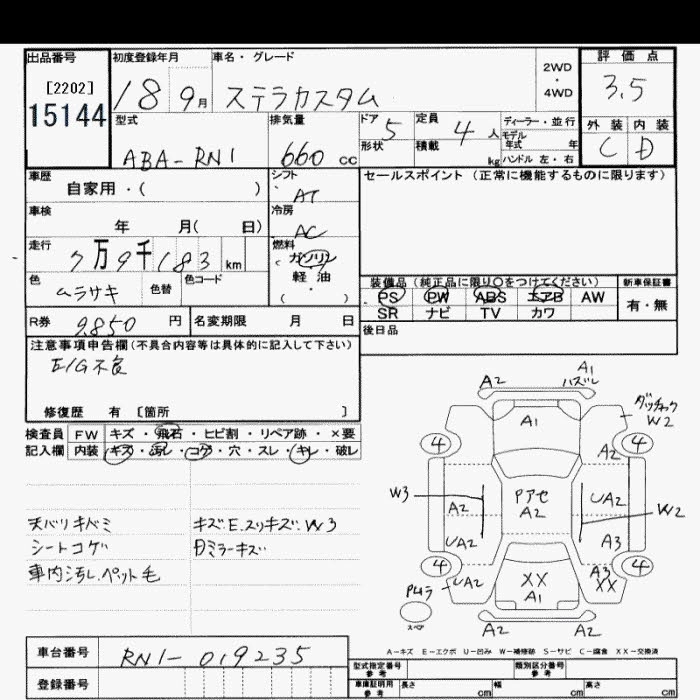 出品番号
[2202]
15144
初度登録年月
18 9月
車名・グレード
ステラカスタム
2WD
・
4WD
評価点
3.5
外装 内装
C D
型式
ABA-RN1
排気量
660 cc
ドア 5
形状
定員 4 人
積載 kg
ディーラー・並行
モデル
年式 年
ハンドル 左・右
車歴
自家用・( )
シフト
AT
車検
年 月( 日)
冷房
AC
走行
7万9千183 km
燃料
ガソリン
軽・油
( ・ )
色
ムラサキ
色替
色コード
セールスポイント(正常に機能するものに限ります)
装備品(純正品に限り○をつけてください)
PS PW ABS エアB AW
SR ナビ TV カワ
新車保証書
有・無
R券 9850 円
名変期限 月 日
後日品
注意事項申告欄(不具合内容等は具体的に記入して下さい)
E/G不良
修復歴 有 [箇所 ]
検査員 FW キズ・飛石・ヒビ割・リペア跡・×要
記入欄 内装 キズ・汚レ・コゲ・穴・スレ・キレ・破レ
天バリキバミ
シートコゲ
車内汚レ.ペット毛
キズ.E.スリキズ.W3
Dミラーキズ
A2
A1
ハズレ
A1
ダッチャク
W2
4
4
A2
W3
Pアセ
A2
A2
UA2
W2
UA2
A3
4
4
UA2
XX
A1
A3
XX
Pムラ
スペア
A2
A2
A-キズ E-エクボ U-凹み W-補修跡 S-サビ C-腐食 XX-交換済
車台番号 RN1-019235
登録番号
型式指定番号
参考
類別区分番号
参考
車庫証明用
参考
長さ cm 幅 cm 高さ cm